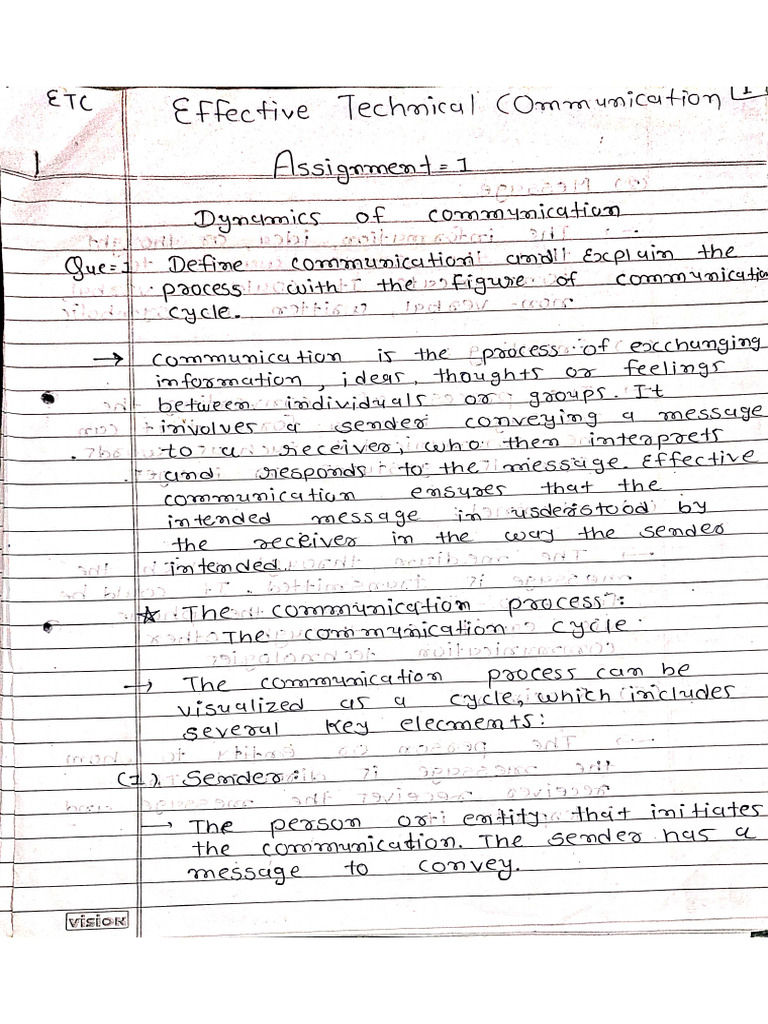 ETC
Effective Technical Communication
1
Assignment = 1
Dynamics of communication
Que = 1 Define communication and Explain the
process with the figure of communication
cycle.
→ communication is the process of excchanging
information, ideas, thoughts or feelings
between individuals or groups. It
involves a sender conveying a message
to a receiver, who then interprets
and responds to the message. Effective
communication ensures that the
intended message in usderstood by
the receiver in the way the sender
intended.
☆ The communication process:
The communication cycle.
→ The communication process can be
visualized as a cycle, which includes
several key elecments:
(1). Sender:
→ The person or entity that initiates
the communication. The sender has a
message to convey.
VISION